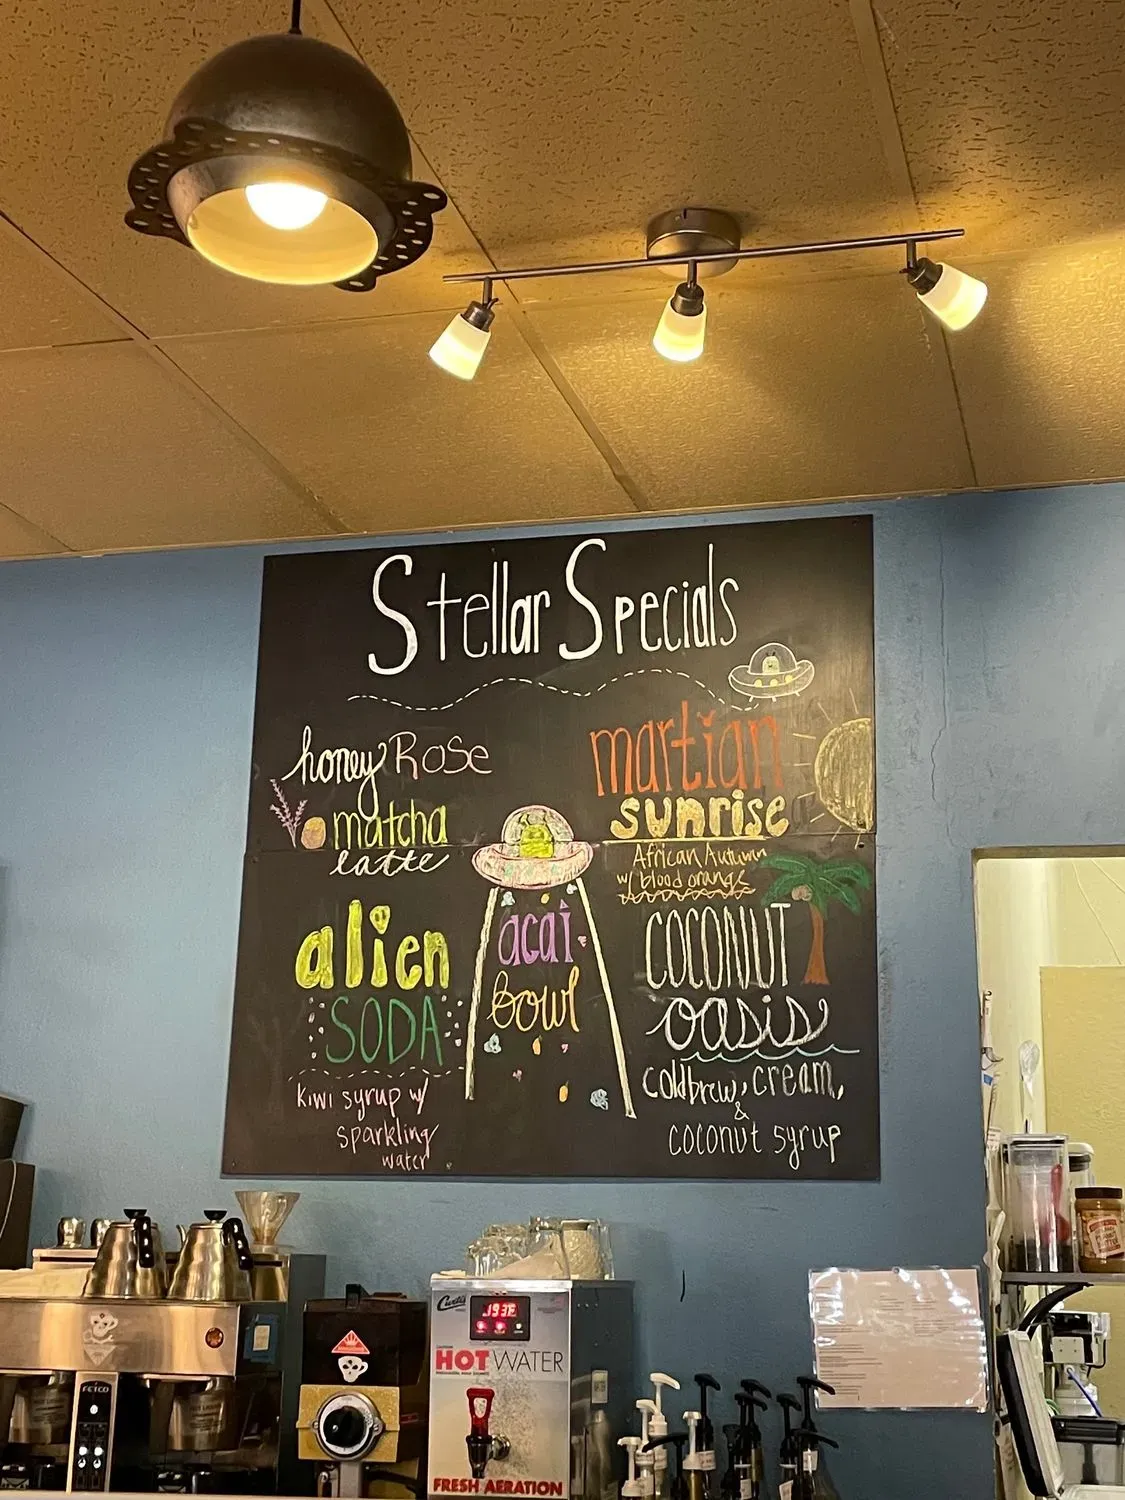 Stellar Specials
honey Rose
matcha
latte
martian
sunrise
African Autumn
w/ blood orange
alien
SODA
kiwi syrup w/
sparkling
water
acai
Bowl
COCONUT
oasis
coldbrew, cream,
&
coconut syrup
FETCO
Curtis
193F
HOT WATER
FRESH AERATION